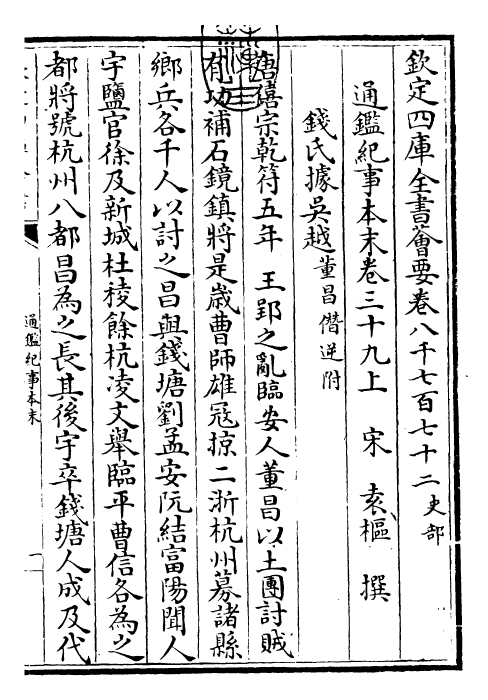 欽定四庫全書薈要卷八千七百七十二史部
通鑑紀事本末卷三十九上　宋　袁樞　撰
錢氏據吳越董昌僭逆附
唐僖宗乾符五年　王郢之亂臨安人董昌以土團討賊
有功補石鏡鎮將是歲曹師雄冦掠二浙杭州募諸縣
鄉兵各千人以討之昌與錢塘劉孟安阮結富陽聞人
宇鹽官徐及新城杜稜餘杭凌文舉臨平曹信各為之
都將號杭州八都昌為之長其後宇卒錢塘人成及代
通鑑紀事本末
一